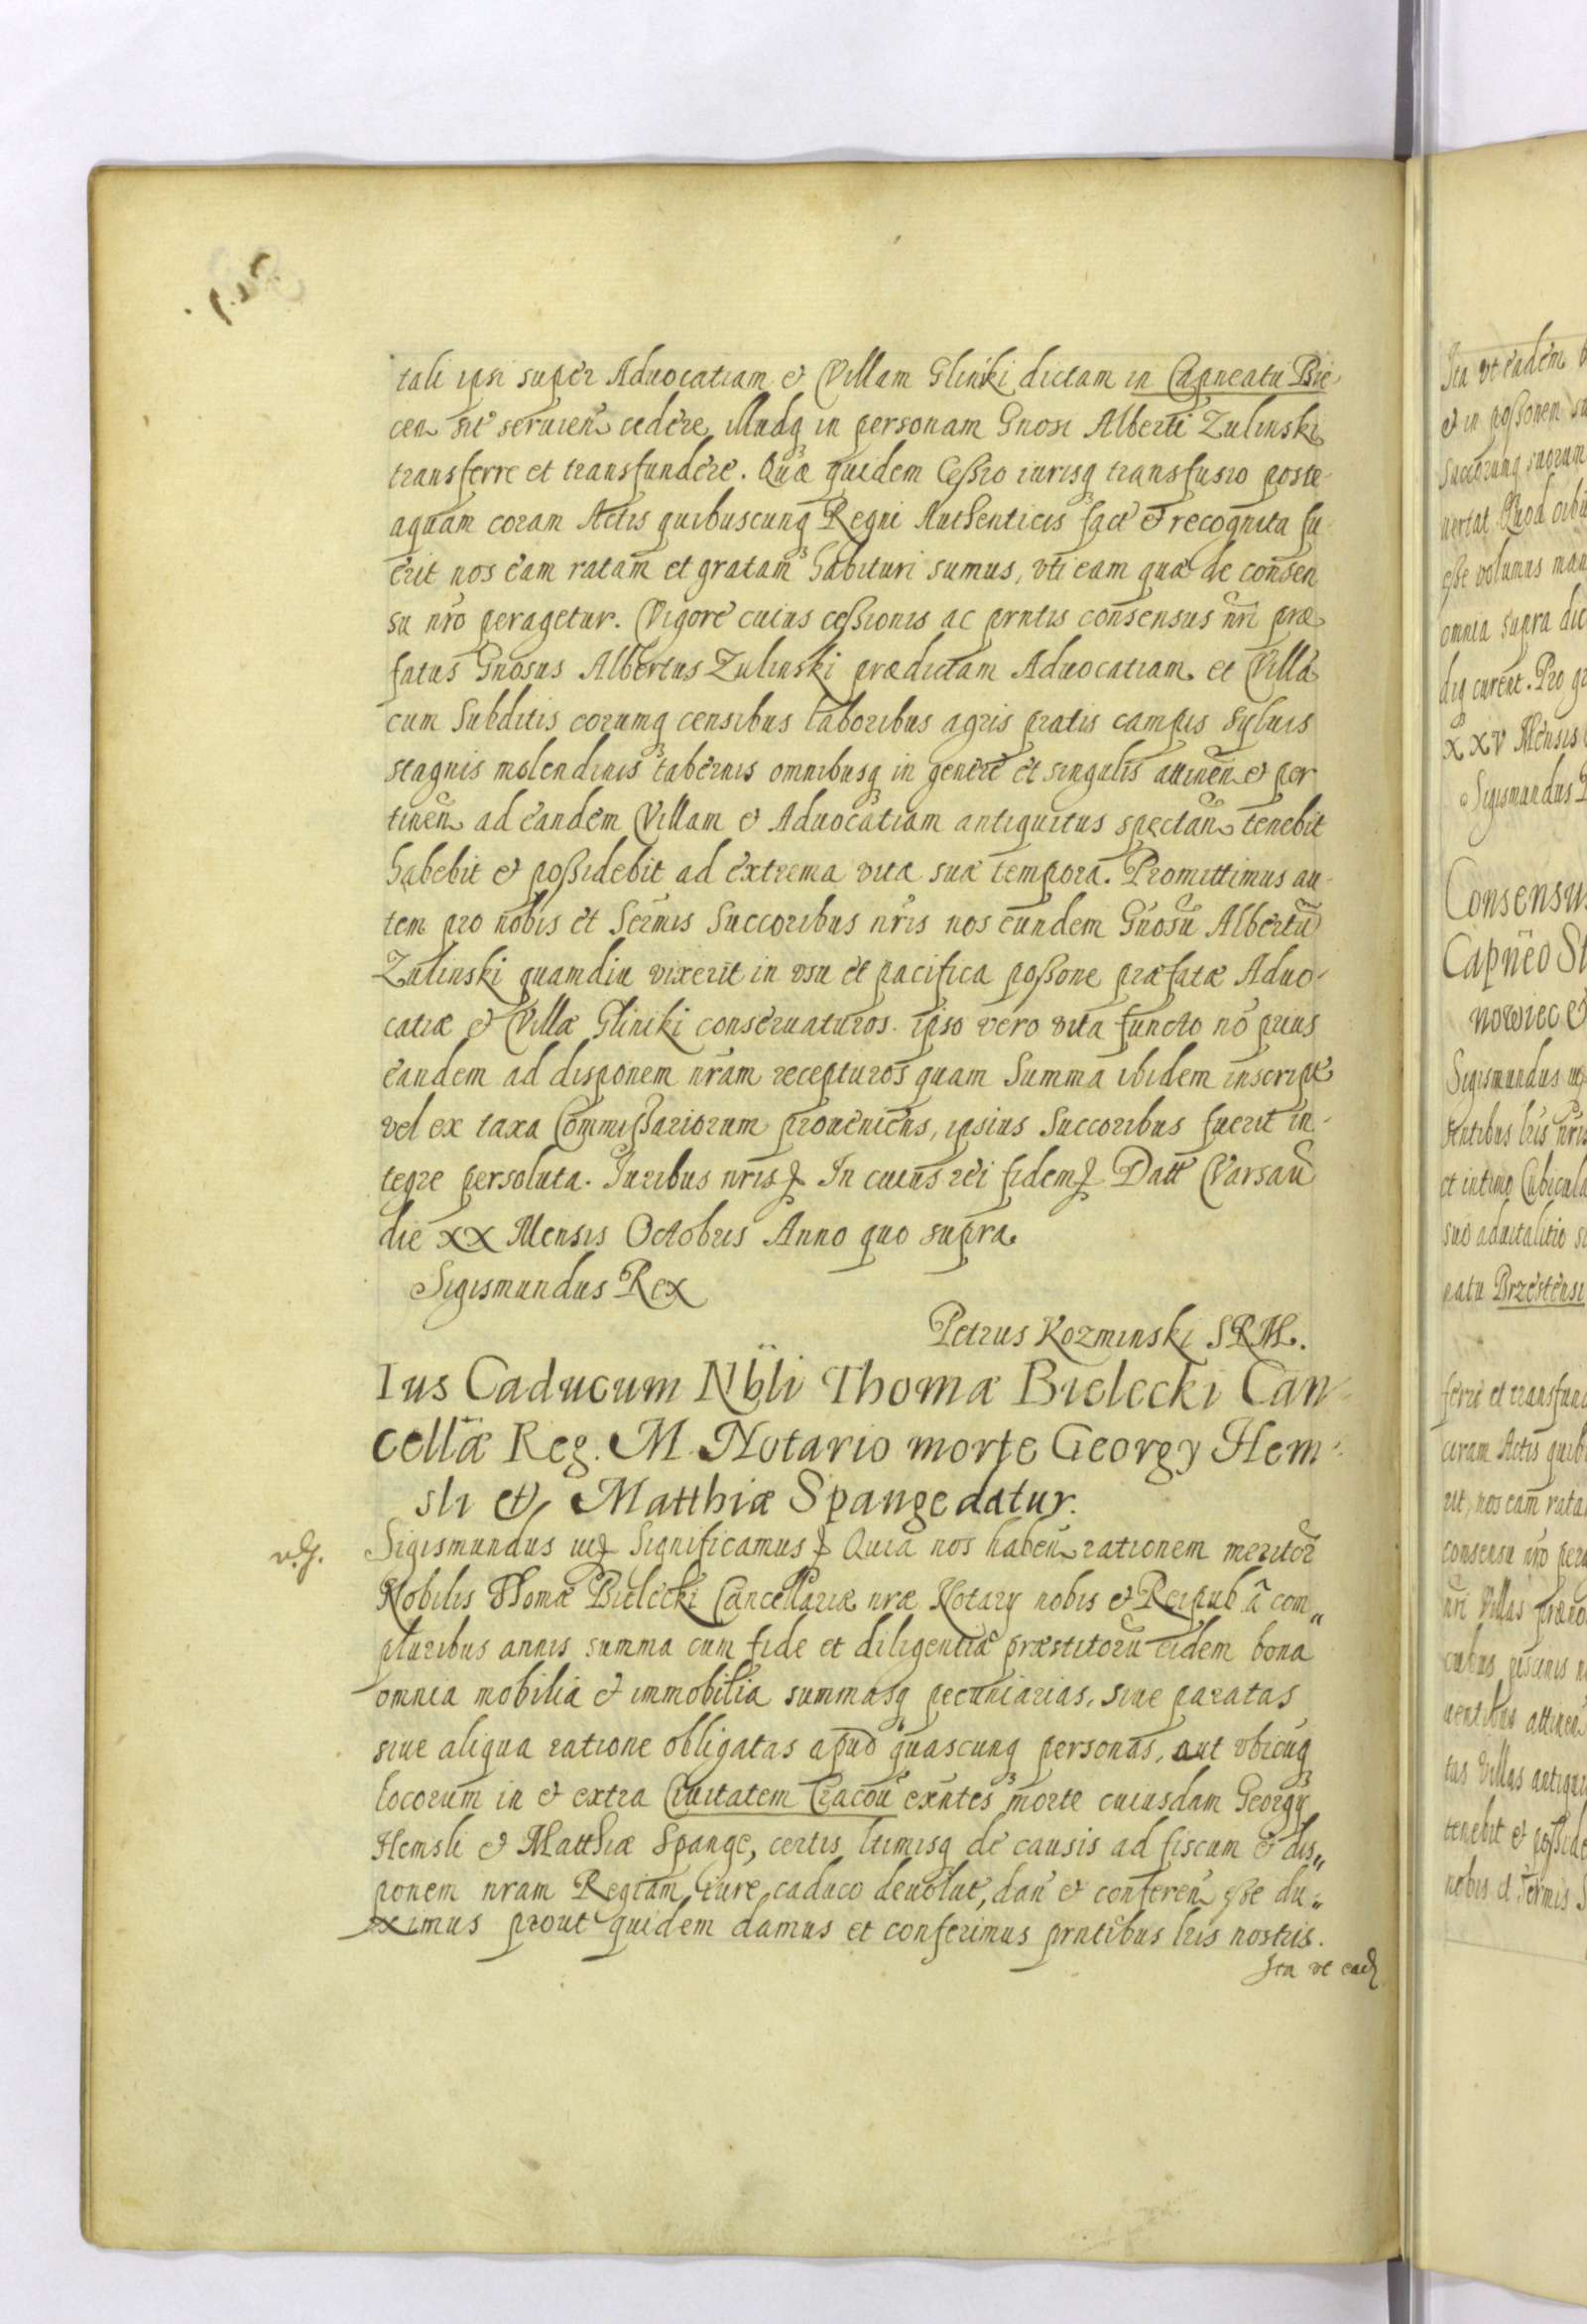 tali ipsi super Aduocatiam et Villam Gliniki dictam in Capneatu Bie
cen sit seruien cedere, illudq in personam Gnosi Alberti Zulinski
transferre et transfundere. Quæ quidem Cessio iurisq transfusio poste
aquam coram Actis quibuscunq Regni Authenticis fact et recognita fu
erit nos eam ratam et gratam habituri sumus, vti eam quæ de consen
su nro peragetur. Vigore cuius cessionis ac prntis consensus nri præ
fatus Gnosus Albertus Zulinski prædictam Aduocatiam et Villã
cum Subditis eorumq censibus laboribus agris pratis campis syluis
stagnis molendinis tabernis omnibusq in genere et singulis attinen et per
tinen ad eandem Villam et Aduocatiam antiquitus spectan tenebit
habebit et possidebit ad extrema vitæ suæ tempora. Promittimus au-
tem pro nobis et Sermis Succoribus nris nos eundem Gnosũ Albertũ
Zulinski quamdiu vixerit in vsu et pacifica possone præfatæ Aduo-
catiæ et Villæ Gliniki conseruaturos. ipso vero vita functo nõ prius
eandem ad disponem nram recepturos quam Summa ibidem inscript
vel ex taxa Commissariorum proueniens, ipsius Succoribus fuerit in-
tegre persoluta. Iuribus nris etc In cuius rei fidem etc Datt Varsau
die XX Mensis Octobris Anno quo supra.
Sigismundus Rex
Petrus Kozminski SRM.
Ius Caducum Nbli Thomæ Bielecki Can-
cellæ Reg. M. Notario morte Georgy Hem-
sli et Matthiæ Spange datur.
Sigismundus etc Significamus etc Quia nos haben rationem meritor
Nobilis Thomæ Bielecki Cancellariæ nræ Notary nobis et Reipub ã com„
pluribus annis summa cum fide et diligentia præstitorũ eidem bona
omnia mobilia et immobilia summasq pecuniarias, siue paratas
siue aliqua ratione obligatas apud quascunq personas, aut vbicuq
locorum in et extra Ciuitatem Cracou exntes morte cuiusdam Georgy
Hemsli et Matthiæ Spange, certis ltimisq de causis ad fiscum et dis„
ponem nram Regiam iure caduco deuolut, dan et conferen esse du„
ximus prout quidem damus et conferimus prntibus lris nostris.
Ita vt ead

Ita vt eadem
et in possonem
Succorumq suorum
nertat. Quod
esse volumus
omnia supra
diq curent. Pro
XXV Mensis
Sigismundus
Consensus
Capneo
nowiec et
Sigismundus
sentibus lris nris
et intimo Cubicula
suo aduitalitio
eatu Brzestensi
ferre et transfun
coram Actis quib
rit, nos eam rata
consensu nro
nri Villas
tas Villas antiqu
tenebit et posside
nobis et Sermis